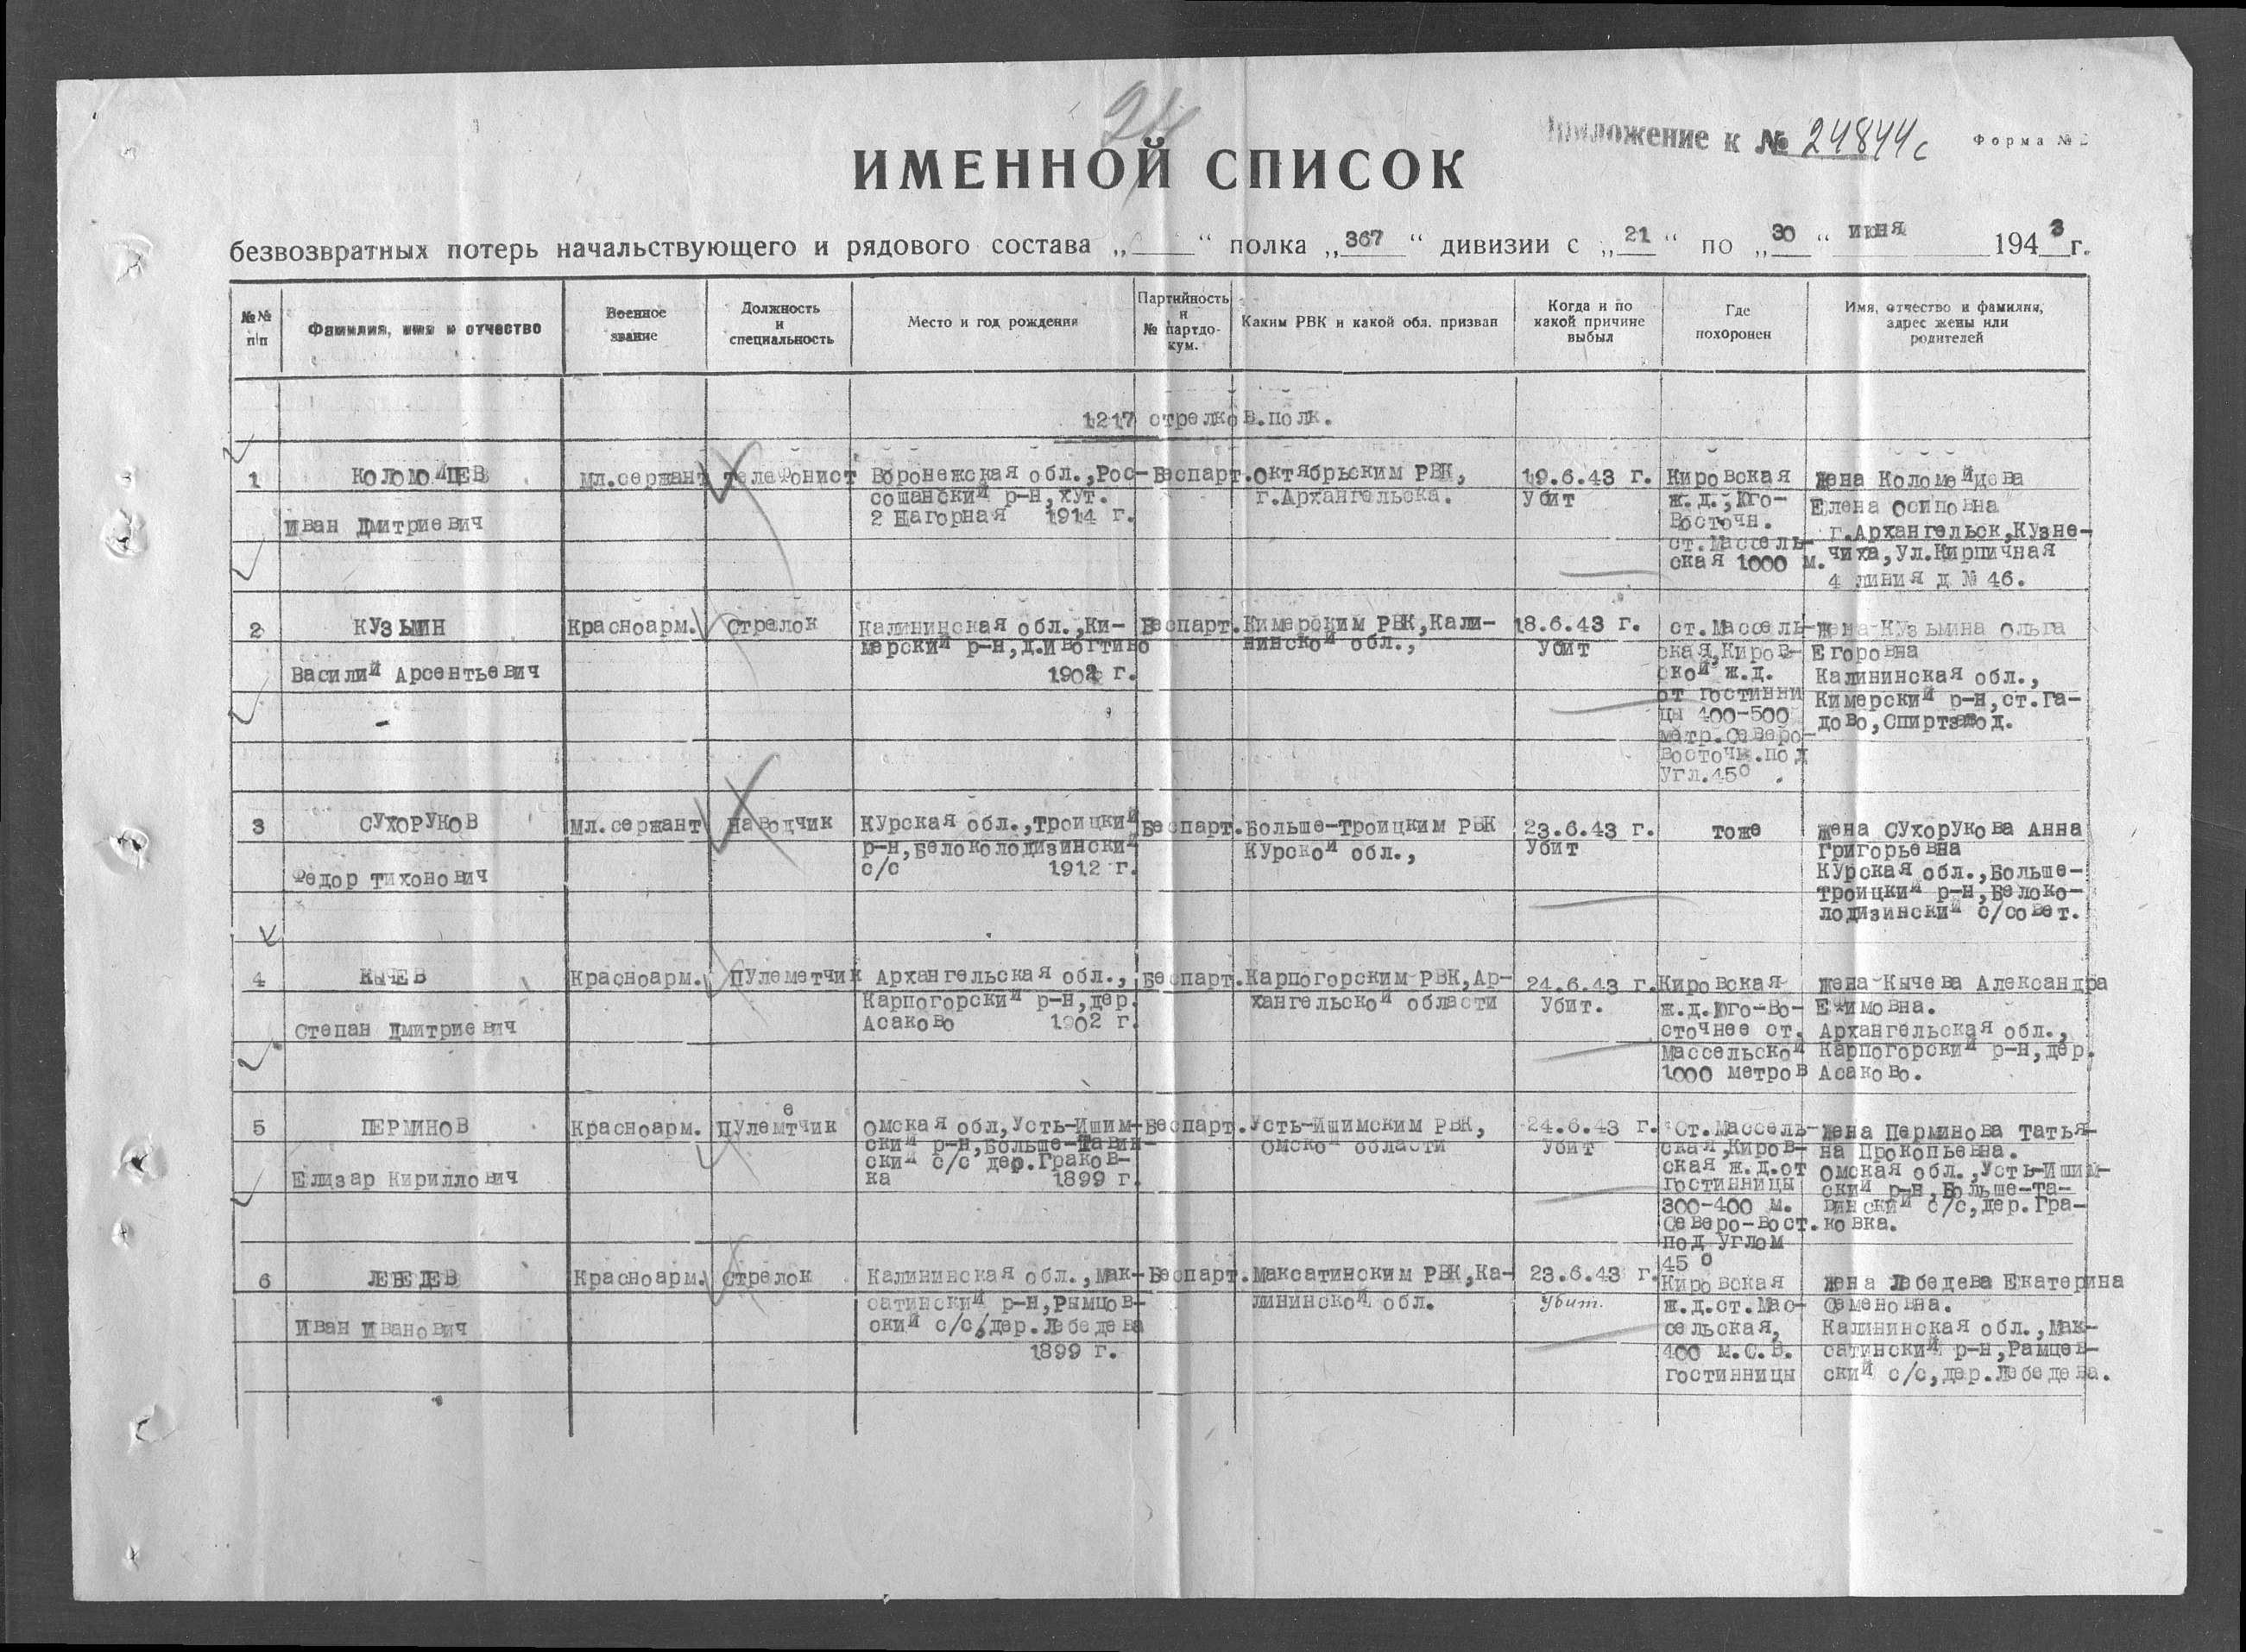 24
Приложение к № 24844с
Форма № 2
ИМЕННОЙ СПИСОК
безвозвратных потерь начальствующего и рядового состава „ “ полка „367“ дивизии с „21“ по „30“ июня 1943 г.
№№ п/п
Фамилия, имя и отчество
Военное звание
Должность и специальность
Место и год рождения
Партийность и № партдокум.
Каким РВК и какой обл. призван
Когда и по какой причине выбыл
Где похоронен
Имя, отчество и фамилия, адрес жены или родителей
1217 стрелков.полк.
1
КОЛОМОЙЦЕВ
Иван Дмитриевич
Мл.сержант
Телефонист
Воронежская обл.,Рос-
сошанский р-н,хут.
2 Нагорная 1914 г.
Беспарт.
Октябрьским РВК,
г.Архангельска.
19.6.43 г.
Убит
Кировская
ж.д.,Юго-
Восточн.
ст.Массель-
ская 1000 м.
Жена Коломейцева
Елена Осиповна
г.Архангельск,Кузне-
чиха,Ул.Кирпичная
4 линия д № 46.
2
КУЗЬМИН
Василий Арсентьевич
Красноарм.
Стрелок
Калининская обл.,Ки-
мерский р-н,д.Ивогтино
1902 г.
Беспарт.
Кимерским РВК,Кали-
нинской обл.,
18.6.43 г.
Убит
ст.Массель-
ская,Киров-
ской ж.д.
от гостинни
цы 400-500
метр.Северо-
Восточн.под
Угл.45°
Жена Кузьмина Ольга
Егоровна
Калининская обл.,
Кимерский р-н,ст.Га-
дово,Спиртзавод.
3
СУХОРУКОВ
Федор Тихонович
Мл.сержант
Наводчик
Курская обл.,Троицкий
р-н,Белоколодизинский
с/с 1912 г.
Беспарт.
Больше-Троицким РВК
Курской обл.,
23.6.43 г.
Убит
тоже
Жена Сухорукова Анна
Григорьевна
Курская обл.,Больше-
Троицкий р-н,Белоко-
лодизинский с/совет.
4
КЫЧЕВ
Степан Дмитриевич
Красноарм.
Пулеметчик
Архангельская обл.,
Карпогорский р-н,дер.
Асаково 1902 г.
Беспарт.
Карпогорским РВК,Ар-
хангельской области
24.6.43 г.
Убит.
Кировская
ж.д.Юго-Во-
сточнее ст.
Массельской
1000 метров
Жена Кычева Александра
Ефимовна.
Архангельская обл.,
Карпогорский р-н,дер.
Асаково.
5
ПЕРМИНОВ
Елизар Кириллович
Красноарм.
Пулеметчик
Омская обл,Усть-Ишим-
ский р-н,Больше-Тавин-
ский с/с дер.Граков-
ка 1899 г.
Беспарт.
Усть-Ишимским РВК,
Омской области
24.6.43 г.
Убит
Ст.Массель-
ская,Киров-
ская ж.д.от
гостинницы
300-400 м.
Северо-Вост.
под Углом
45°
Жена Перминова Татья-
на Прокопьевна.
Омская обл.,Усть-Ишим-
ский р-н,Больше-Та-
винский с/с,дер.Гра-
ковка.
6
ЛЕБЕДЕВ
Иван Иванович
Красноарм.
Стрелок
Калининская обл.,Мак-
сатинский р-н,Рымцов-
ский с/с,дер.Лебедева
1899 г.
Беспарт.
Максатинским РВК,Ка-
лининской обл.
23.6.43 г.
Убит.
Кировская
ж.д.ст.Мас-
сельская,
400 м.С.В.
гостинницы
Жена Лебедева Екатерина
Семеновна.
Калининская обл.,Мак-
сатинский р-н,Рамцев-
ский с/с,дер.Лебедева.